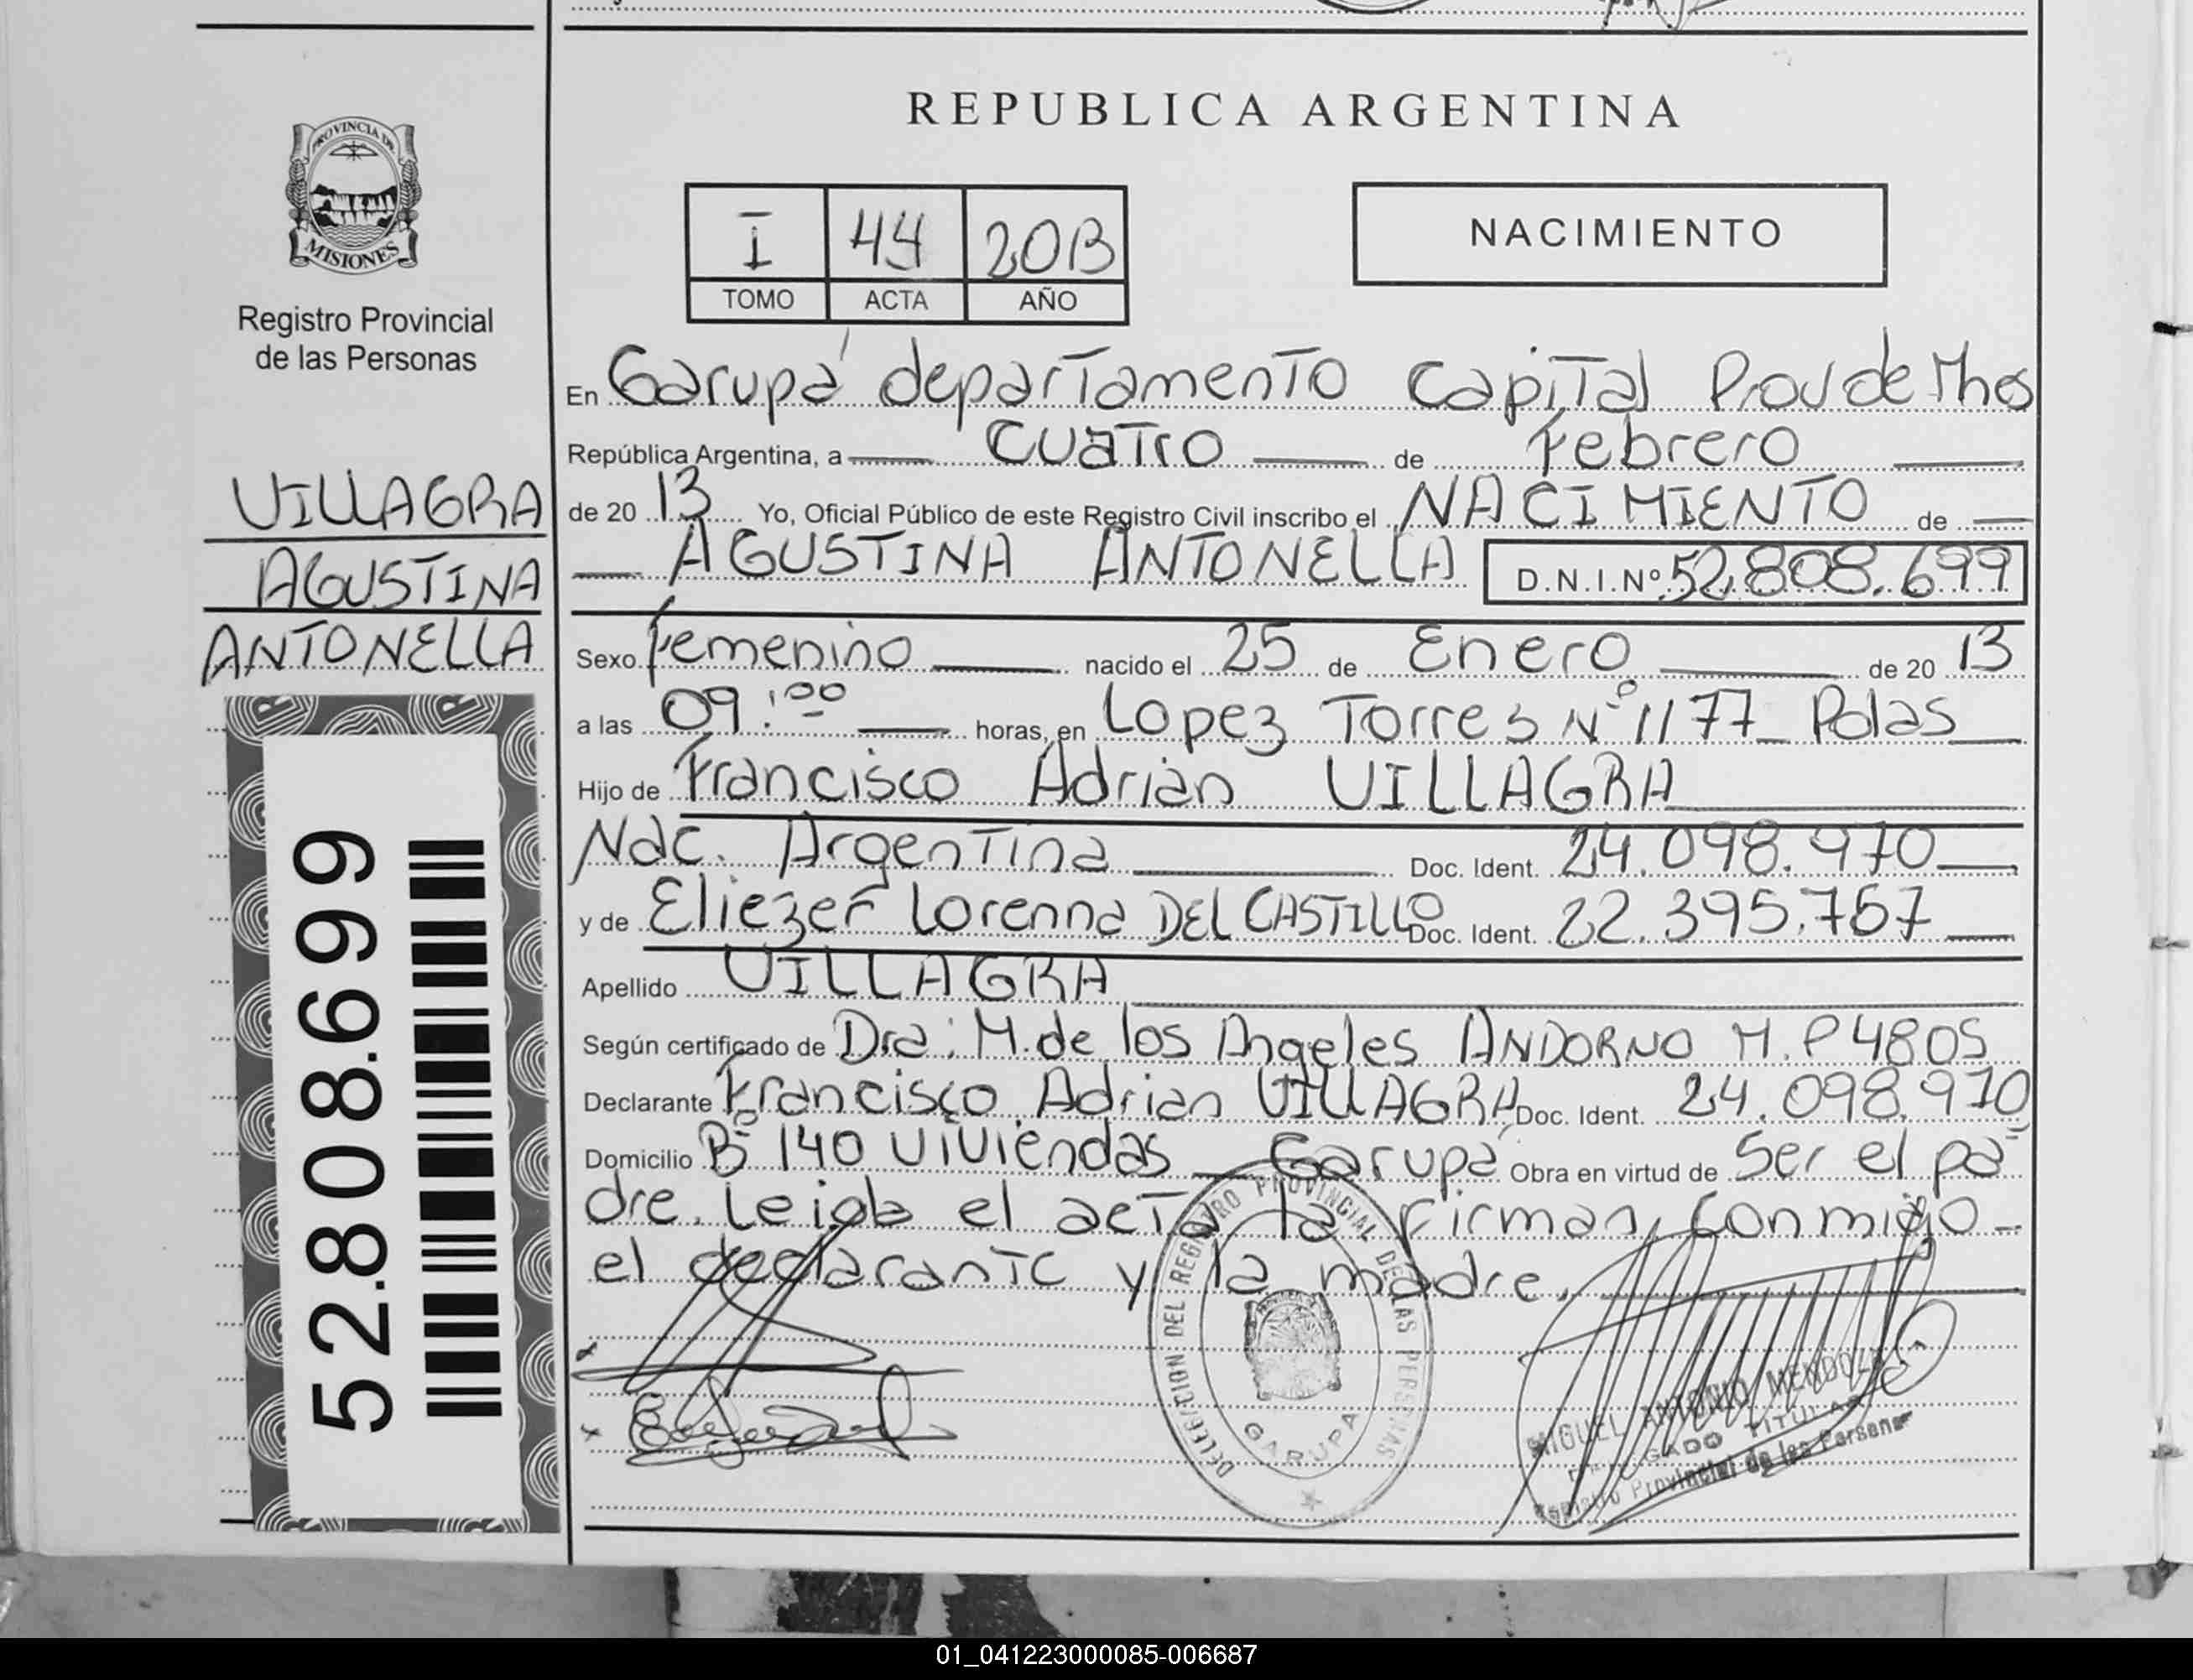 REPUBLICA ARGENTINA
PROVINCIA DE
MISIONES
Registro Provincial
de las Personas
VILLAGRA
AGUSTINA
ANTONELLA
52.808.699
I 44 2013
TOMO ACTA AÑO
NACIMIENTO
En Garupá departamento Capital Prov de Mnes
República Argentina, a cuatro de Febrero
de 20 13 Yo, Oficial Público de este Registro Civil inscribo el NACIMIENTO de
AGUSTINA ANTONELLA D.N.I.Nº 52.808.699
Sexo Femenino nacido el 25 de Enero de 20 13
a las 09:00 horas, en Lopez Torres Nº 1177_ Pdas
Hijo de Francisco Adrian VILLAGRA
Nac. Argentina Doc. Ident. 24.098.970
y de Eliezer Lorenna DEL CASTILLO Doc. Ident. 22.395.767
Apellido VILLAGRA
Según certificado de Dra: M. de los Angeles ANDORNO M.P 4805
Declarante Francisco Adrian VILLAGRA Doc. Ident. 24.098.970
Domicilio Bº 140 viviendas _ Garupá Obra en virtud de Ser el pa
dre. Leida el acta la firman conmigo
el declarante y la madre.
DELEGACION DEL REGISTRO PROVINCIAL DE LAS PERSONAS
GARUPA
MIGUEL ANTONIO MENDOZA
DELEGADO TITULAR
Registro Provincial de las Personas
01_041223000085-006687